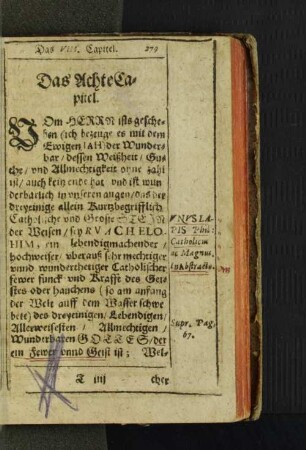 Das VIII. Capitel. 279
Das Achte Ca-
pitel.
VOm HERRN ists gesche-
hen (ich bezeuge es mit dem
Ewigen /AH) der Wunder-
bar / dessen Weißheit / Gu-
the / vnd Allmechtigkeit ohne zahl
ist / auch kein ende hat vnd ist wun
derbarlich in vnseren augen / das der
dreyeinige allein
Catholische vnd Grosse STEIN
der Weisen / sey RVACH ELO-
HIM, ein lebendigmachender /
hochweiser / vberauß sehr mechtiger
vnnd wunderthetiger Catholischer
fewer funck vnd Krafft des Gei-
stes oder hauchens (so am anfang
der Welt auff dem Wasser schwe
bete) des dreyeinigen / Lebendigen /
Allerweisesten / Allmechtigen /
Wunderbaren GOTTES / der
ein Fewer vnnd Geist ist; Wel-
T iiij cher
VNVS LA-
PIS Phil:
Catholicus
ac Magnus,
in abstracto.
Supr. Pag.
67.